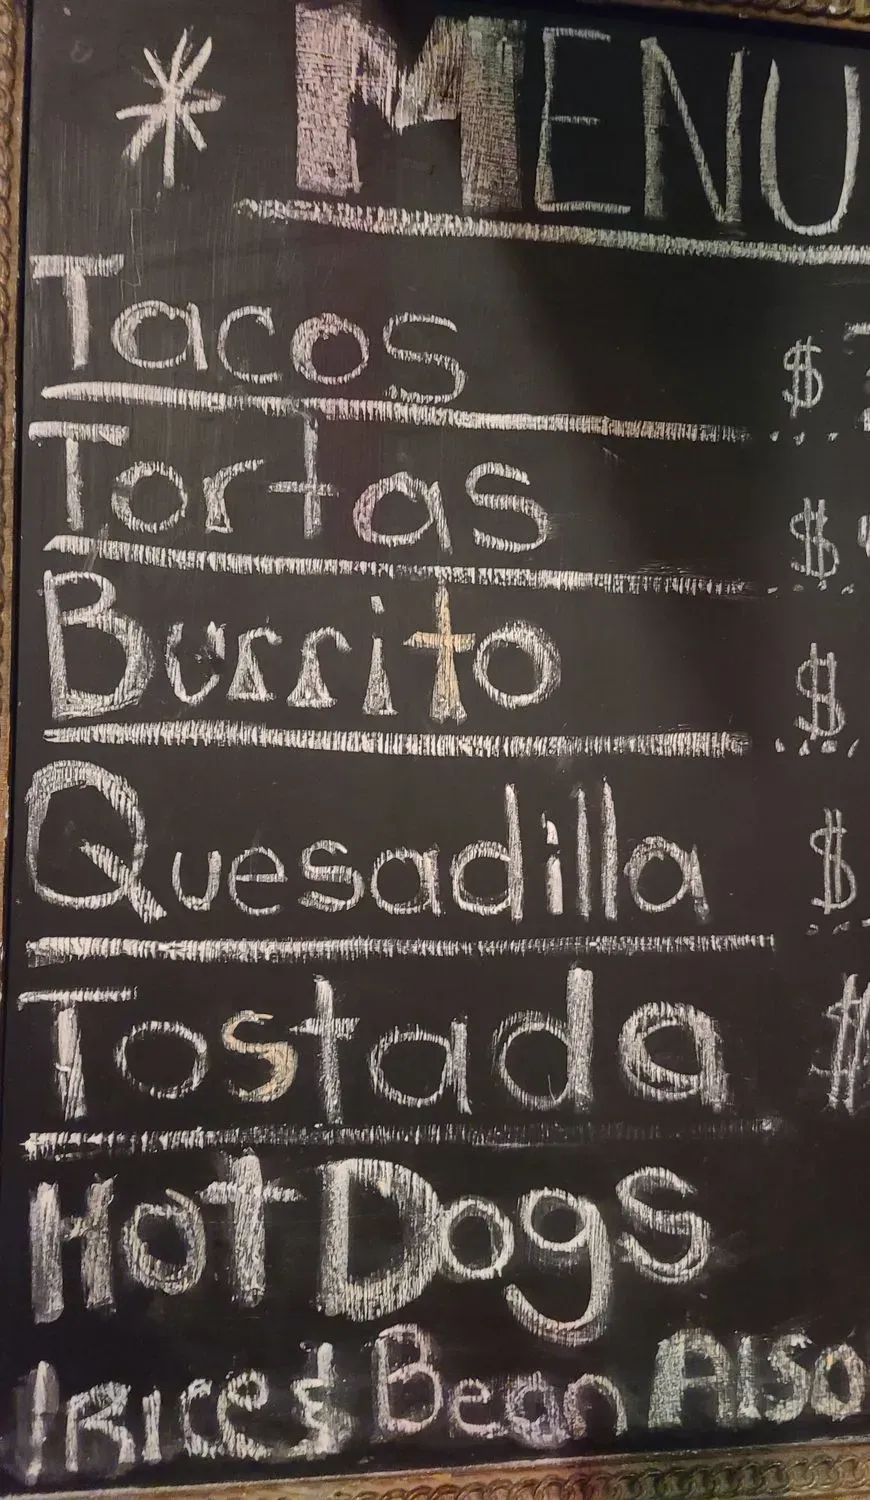 * MENU
Tacos $
Tortas $
Burrito $
Quesadilla $
Tostada $
Hot Dogs
Rice & Bean Also